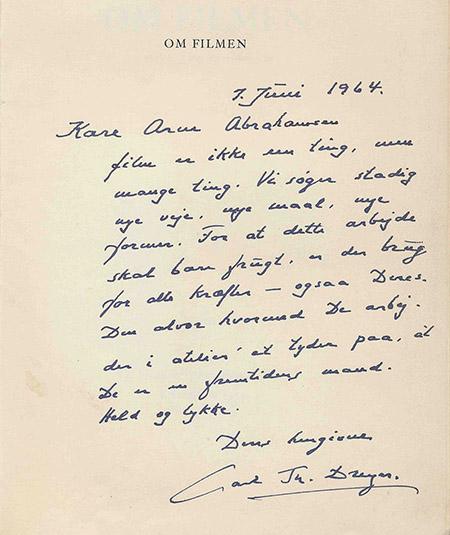 OM FILMEN
7. Juni 1964.
Kære Arne Abrahamsen
film er ikke een ting, men
mange ting. Vi søger stadig
nye veje, nye maal, nye
former. For at dette arbejde
skal bære frugt, er der brug
for alle kræfter – ogsaa Deres.
Den alvor hvormed De arbej-
der i atelier'et tyder paa, at
De er en fremtidens mand.
Held og lykke.
Deres hengivne
Carl Th. Dreyer.